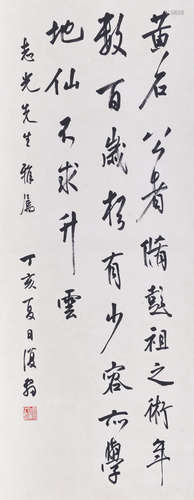 黄石公者脩彭祖之術年
数百歲猶有少容亦學
地仙不求升雲
志光先生雅属
丁亥夏日復翁